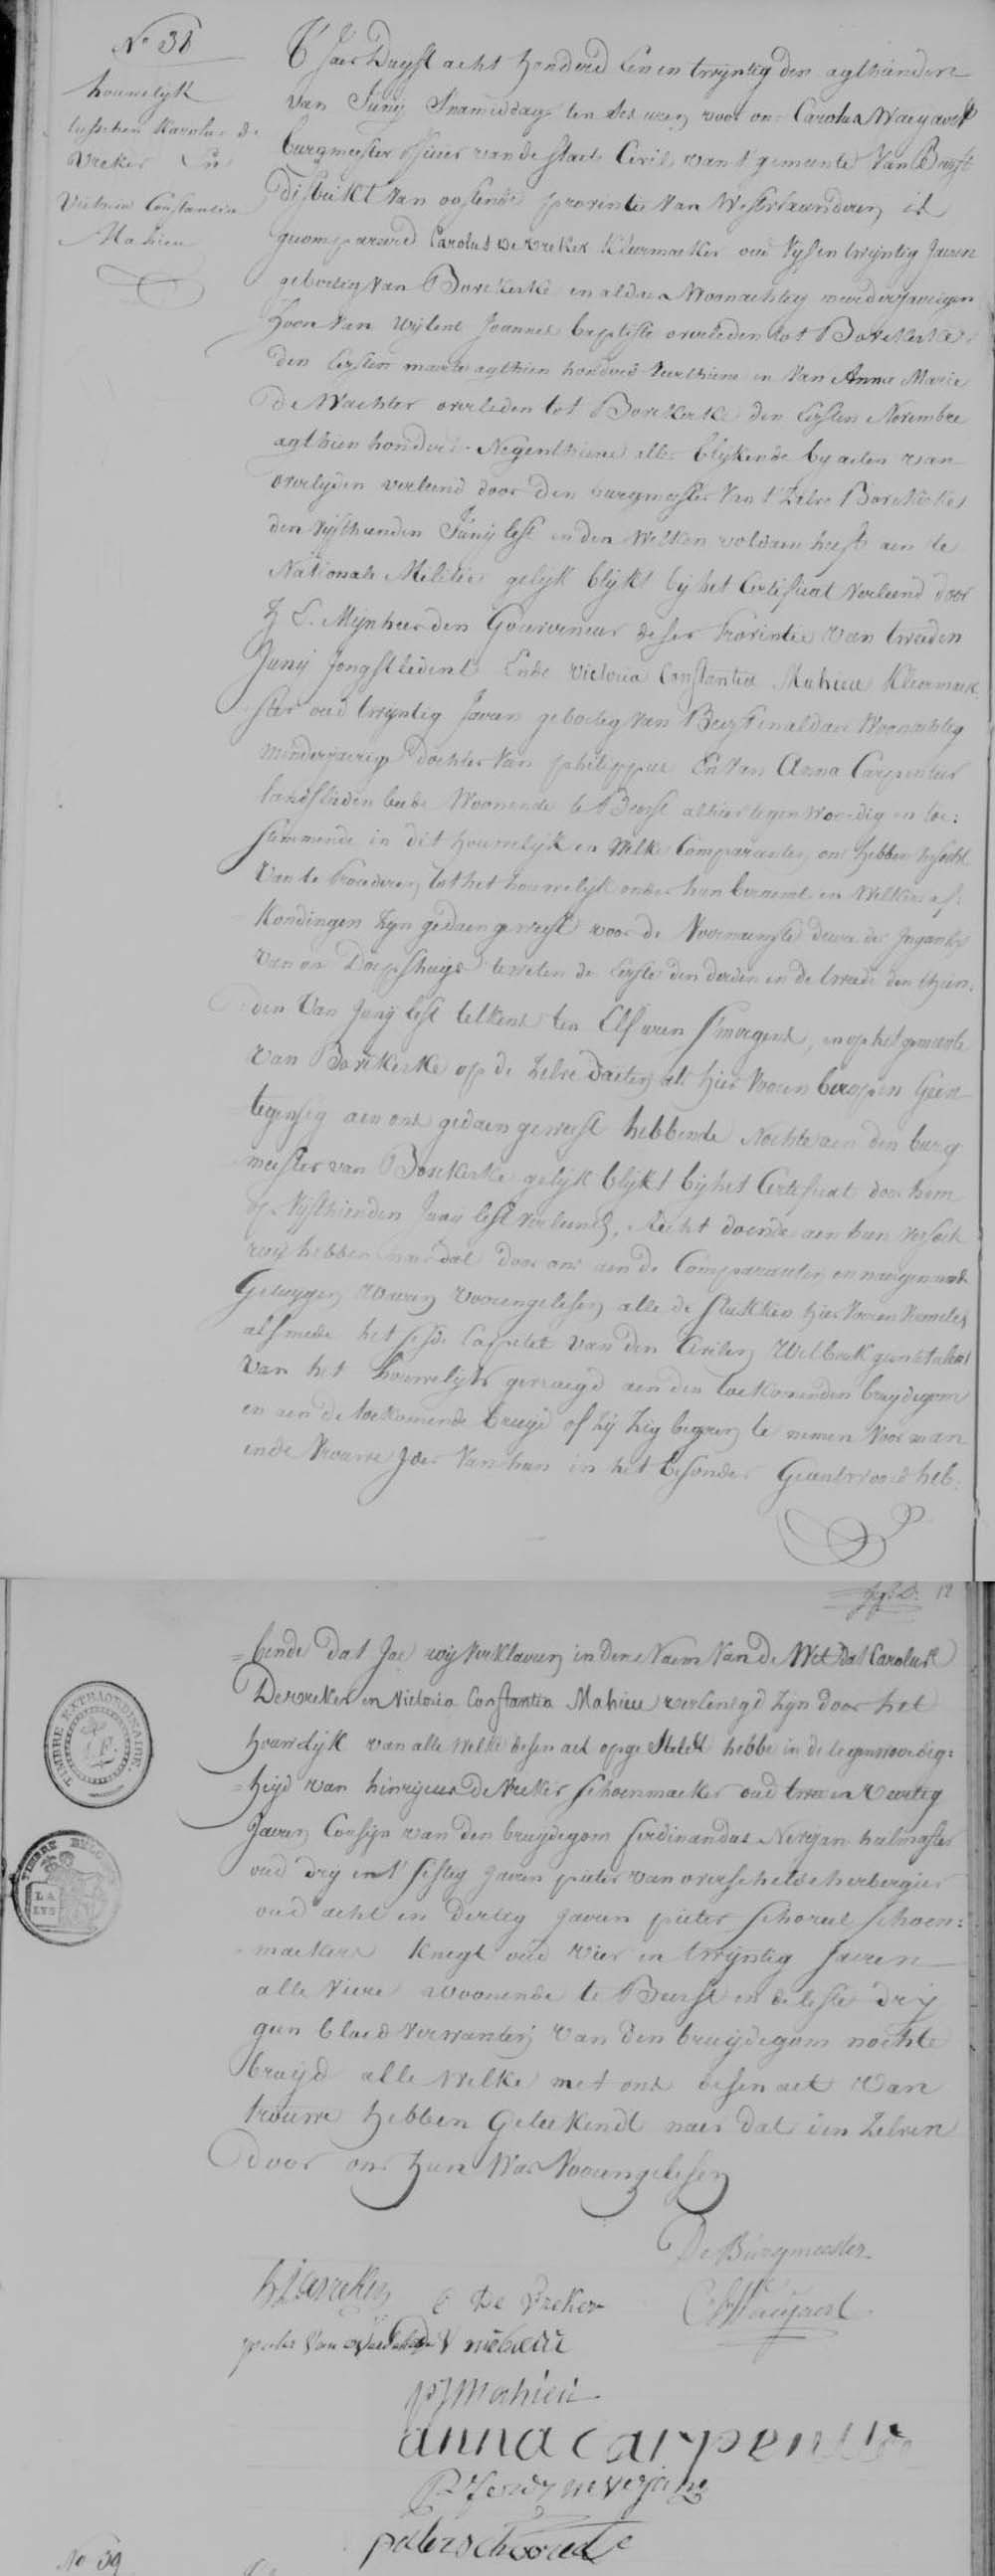 No 38
houwelijk
tusschen Karolus de
Vreker En
Victoria Constantia
Mahieu
T Jaer Duyst acht honderd Eenen twyntig den agthienden
van Junij Snamiddag ten ses uren voor ons Carolus Waeyaert
burgmeester officier van de staet Civil van t gemeente Van Beerst
distrikt Van oostende provintie Van Westvlaenderen is
gecompareerd Carolus De vreker Kleermaeker oud Vyf en twyntig Jaeren
geboetig Van Bovekerke en aldaer Woonachtig meerderjaerigen
Zoon Van Wijlent Joannes baptiste overleden tot Bovekerke
den Eersten maerte agthien honderd veerthiene en Van Anna Marie
de Wachter overleden tot Bovekerke den Eersten Novembre
agthien honderd Negenthiene alles blijkende by acten van
overlyden verleend door den burgmeester Van t Zelve Bovekerke
den Vijfthienden Junij lest en den Welken voldaen heeft aen de
Nationale Militie gelijk blijkt bij het Certificat Verleend door
Z E. Mijnheer den Gouverneur deser Provintie van tweeden
Junij Jongstledent Ende Victoria Constantia Mahieu Kleermaek
ster oud twyntig Jaeren geboetig Van Beerst en aldaer Woonachtig
minderjaerige dochter Van philippus En Van Anna Carpentier
landslieden beede Woonende te Beerst alhier tegenwoordig en toe:
stemmende in dit houwelijk en Welke Comparanten ons hebben versocht
Van te Procederen tot het houwelijk onder hun beraemt en Welkers af:
kondingen Zyn gedaen geweest voor de Voornaemste deure der Ingank
van ons Dorpshuys te weten de Eerste den derden en de tweede den thien:
den Van Junij lest telkens ten Elf uren Smorgens, en op het gemeente
van Bovekerke op de Zelve daeten als hier vooren beroppen Geen
tegenseg aen ons gedaen geweest hebbende Nochte aen den burg
meester van Bovekerke gelijk blijkt bij het Certificat door hem
op Vijfthienden Junij lest Verleend, Recht doende aen hun versoek
wij hebben naer dat door ons aen de Comparanten en naergenaemde
Getuygen Waren Voorengelesen alle de stukken hier Vooren Vermeld
als mede het seste Cappittel van den Civilen Wetboek geintituleert
van het houwelijk gevraegd aen den toekomenden bruydegom
en aen de toekomende bruyd of hij Zig begeren te nemen Voor man
en de Vrouwe Jder Van hun in het besonder Geantwoord heb:
12
=bende dat Jae wij verklaeren in den Naem Van de Wet dat Carolus
Devreker en Victoria Constantia Mahieu vereenigd Zijn door het
houwelijk van alle welke desen act opgesteldt hebbe in de tegenwoordig:
=heyd van hinricus De Vreker schoenmaeker oud twee en Veertig
Jaeren Cousijn van den bruijdegom ferdinandus Neerjan
oud dry en t sestig Jaeren pieter van overschelde herbergier
oud acht en dertig Jaeren pieter Schoreel schoen:
=maekers knegt oud Vier en twyntig Jaeren
alle Viere woonende te Beerst en de leste drij
geen bloed Verwanten van den bruijdegom nochte
bruyd alle Welke met ons desen act Van
trouwe hebben Geteekendt naer dat den Zelven
door ons hun Was Voorengelesen
De Burgmeester
C Waeyaert
C De Vreker
pieter Van
V mahieu
p J Mahieu
anna carpentier
pieter schoreel
No 39
TIMBRE EXTRAORDINAIRE
LA
LYS